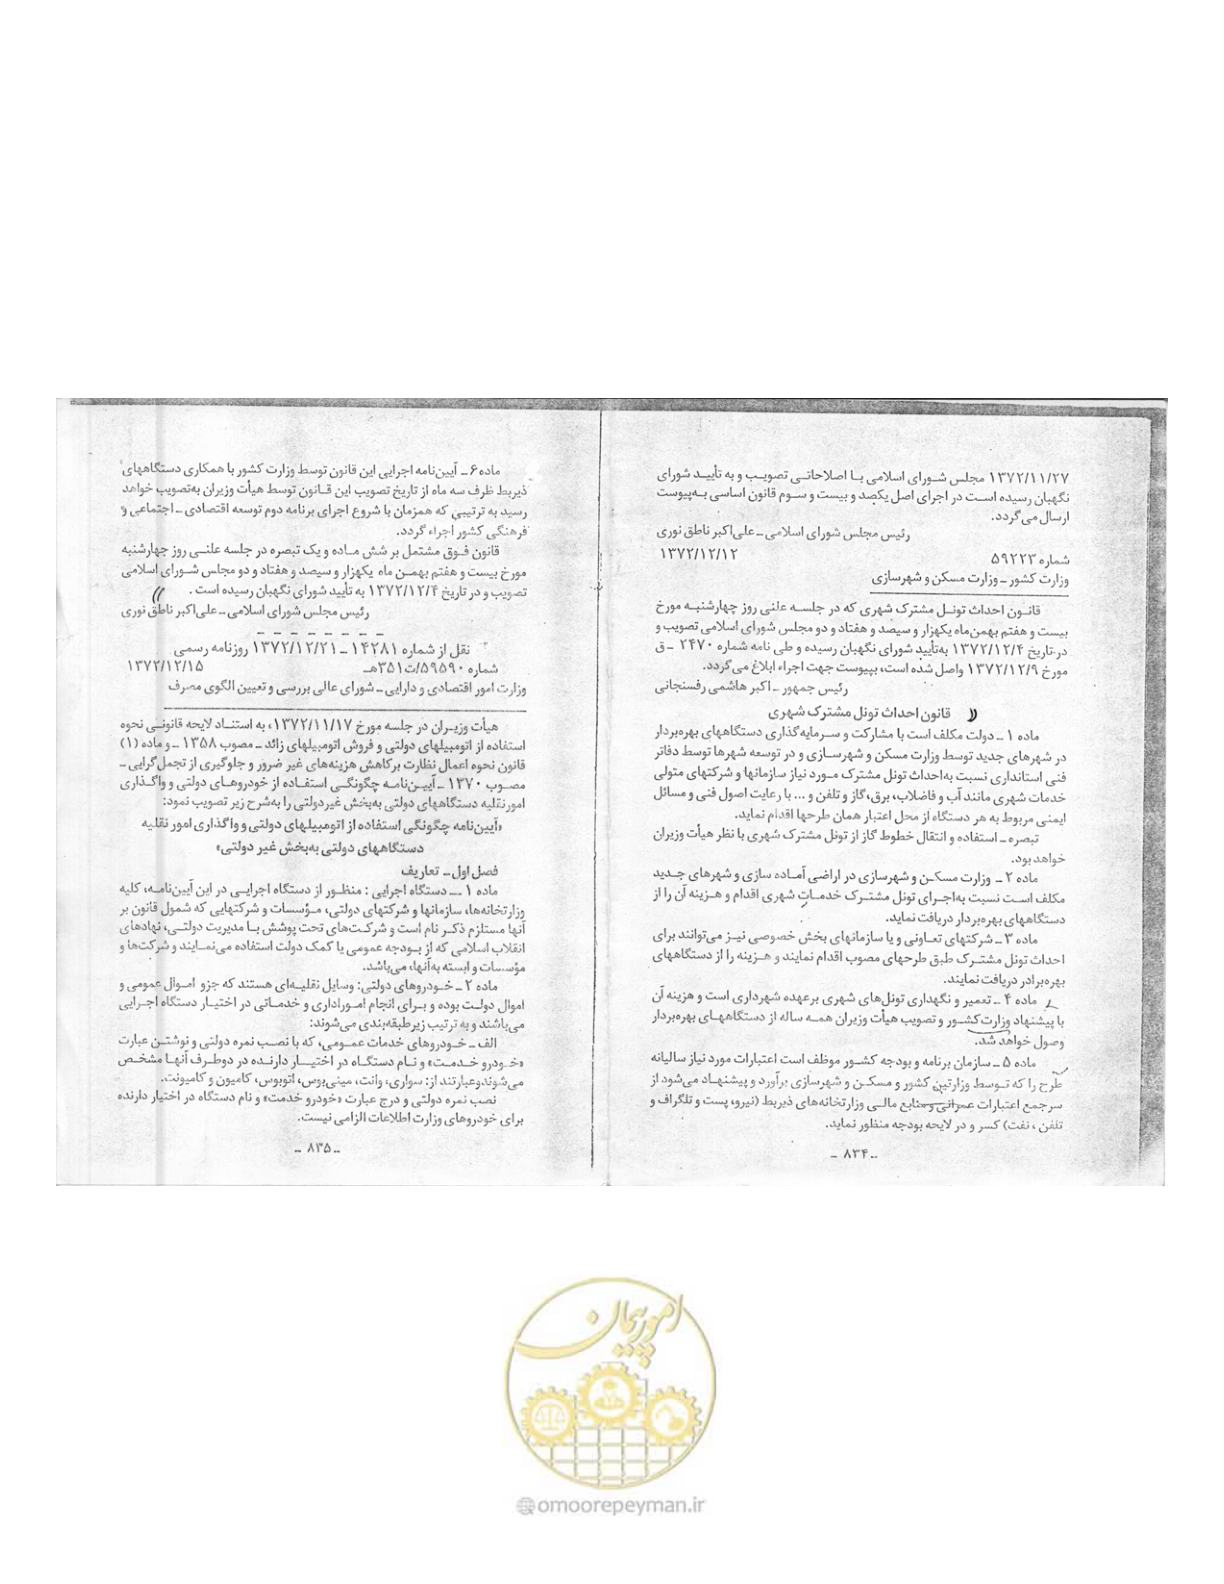 ۱۳۷۲/۱۱/۲۷ مجلس شورای اسلامی با اصلاحاتی تصویب و به تأیید شورای
نگهبان رسیده است در اجرای اصل یکصد و بیست و سوم قانون اساسی به‌پیوست
ارسال می‌گردد.
رئیس مجلس شورای اسلامی ـ علی‌اکبر ناطق نوری
شماره ۵۹۲۲۳ ۱۳۷۲/۱۲/۱۲
وزارت کشور ـ وزارت مسکن و شهرسازی
قانون احداث تونل مشترک شهری که در جلسه علنی روز چهارشنبه مورخ
بیست و هفتم بهمن‌ماه یکهزار و سیصد و هفتاد و دو مجلس شورای اسلامی تصویب و
در تاریخ ۱۳۷۲/۱۲/۴ به‌تأیید شورای نگهبان رسیده و طی نامه شماره ۲۴۷۰ ـ ق
مورخ ۱۳۷۲/۱۲/۹ واصل شده است، بپیوست جهت اجراء ابلاغ می‌گردد.
رئیس جمهور ـ اکبر هاشمی رفسنجانی
قانون احداث تونل مشترک شهری
ماده ۱ ـ دولت مکلف است با مشارکت و سرمایه‌گذاری دستگاههای بهره‌بردار
در شهرهای جدید توسط وزارت مسکن و شهرسازی و در توسعه شهرها توسط دفاتر
فنی استانداری نسبت به‌احداث تونل مشترک مورد نیاز سازمانها و شرکتهای متولی
خدمات شهری مانند آب و فاضلاب، برق، گاز و تلفن و ... با رعایت اصول فنی و مسائل
ایمنی مربوط به هر دستگاه از محل اعتبار همان طرحها اقدام نماید.
تبصره ـ استفاده و انتقال خطوط گاز از تونل مشترک شهری با نظر هیأت وزیران
خواهد بود.
ماده ۲ ـ وزارت مسکن و شهرسازی در اراضی آماده سازی و شهرهای جدید
مکلف است نسبت به‌اجرای تونل مشترک خدمات شهری اقدام و هزینه آن را از
دستگاههای بهره‌بردار دریافت نماید.
ماده ۳ ـ شرکتهای تعاونی و یا سازمانهای بخش خصوصی نیز می‌توانند برای
احداث تونل مشترک طبق طرحهای مصوب اقدام نمایند و هزینه را از دستگاههای
بهره‌برادر دریافت نمایند.
ماده ۴ ـ تعمیر و نگهداری تونل‌های شهری برعهده شهرداری است و هزینه آن
با پیشنهاد وزارت کشور و تصویب هیأت وزیران همه ساله از دستگاههای بهره‌بردار
وصول خواهد شد.
ماده ۵ ـ سازمان برنامه و بودجه کشور موظف است اعتبارات مورد نیاز سالیانه
طرح را که توسط وزارتین کشور و مسکن و شهرسازی برآورد و پیشنهاد می‌شود از
سرجمع اعتبارات عمرانی و منابع مالی وزارتخانه‌های ذیربط (نیرو، پست و تلگراف و
تلفن ، نفت) کسر و در لایحه بودجه منظور نماید.
ـ ۸۳۴ ـ
ماده ۶ ـ آیین‌نامه اجرایی این قانون توسط وزارت کشور با همکاری دستگاههای
ذیربط ظرف سه ماه از تاریخ تصویب این قانون توسط هیأت وزیران به‌تصویب خواهد
رسید به ترتیبی که همزمان با شروع اجرای برنامه دوم توسعه اقتصادی ـ اجتماعی و
فرهنگی کشور اجراء گردد.
قانون فوق مشتمل بر شش ماده و یک تبصره در جلسه علنی روز چهارشنبه
مورخ بیست و هفتم بهمن ماه یکهزار و سیصد و هفتاد و دو مجلس شورای اسلامی
تصویب و در تاریخ ۱۳۷۲/۱۲/۴ به تأیید شورای نگهبان رسیده است .
رئیس مجلس شورای اسلامی ـ علی‌اکبر ناطق نوری
نقل از شماره ۱۴۲۸۱ ـ ۱۳۷۲/۱۲/۲۱ روزنامه رسمی
شماره ۵۹۵۹۰/ت۳۵۱هـ ۱۳۷۲/۱۲/۱۵
وزارت امور اقتصادی و دارایی ـ شورای عالی بررسی و تعیین الگوی مصرف
هیأت وزیران در جلسه مورخ ۱۳۷۲/۱۱/۱۷، به استناد لایحه قانونی نحوه
استفاده از اتومبیلهای دولتی و فروش اتومبیلهای زائد ـ مصوب ۱۳۵۸ ـ و ماده (۱)
قانون نحوه اعمال نظارت برکاهش هزینه‌های غیر ضرور و جلوگیری از تجمل‌گرایی ـ
مصوب ۱۳۷۰ ـ آیین‌نامه چگونگی استفاده از خودروهای دولتی و واگذاری
امور نقلیه دستگاههای دولتی به‌بخش غیردولتی را به‌شرح زیر تصویب نمود:
«آیین‌نامه چگونگی استفاده از اتومبیلهای دولتی و واگذاری امور نقلیه
دستگاههای دولتی به‌بخش غیر دولتی»
فصل اول ـ تعاریف
ماده ۱ ـ دستگاه اجرایی : منظور از دستگاه اجرایی در این آیین‌نامه، کلیه
وزارتخانه‌ها، سازمانها و شرکتهای دولتی، مؤسسات و شرکتهایی که شمول قانون بر
آنها مستلزم ذکر نام است و شرکت‌های تحت پوشش با مدیریت دولتی، نهادهای
انقلاب اسلامی که از بودجه عمومی یا کمک دولت استفاده می‌نمایند و شرکت‌ها و
مؤسسات و ابسته به‌آنها، می‌باشد.
ماده ۲ ـ خودروهای دولتی: وسایل نقلیه‌ای هستند که جزو اموال عمومی و
اموال دولت بوده و برای انجام اموراداری و خدماتی در اختیار دستگاه اجرایی
می‌باشند و به ترتیب زیر طبقه‌بندی می‌شوند:
الف ـ خودروهای خدمات عمومی، که با نصب نمره دولتی و نوشتن عبارت
«خودرو خدمت» و نام دستگاه در اختیار دارنده در دوطرف آنها مشخص
می‌شوند و عبارتند از: سواری، وانت، مینی‌بوس، اتوبوس، کامیون و کامیونت.
نصب نمره دولتی و درج عبارت «خودرو خدمت» و نام دستگاه در اختیار دارنده
برای خودروهای وزارت اطلاعات الزامی نیست.
ـ ۸۳۵ ـ
امور پیمان
omoorepeyman.ir